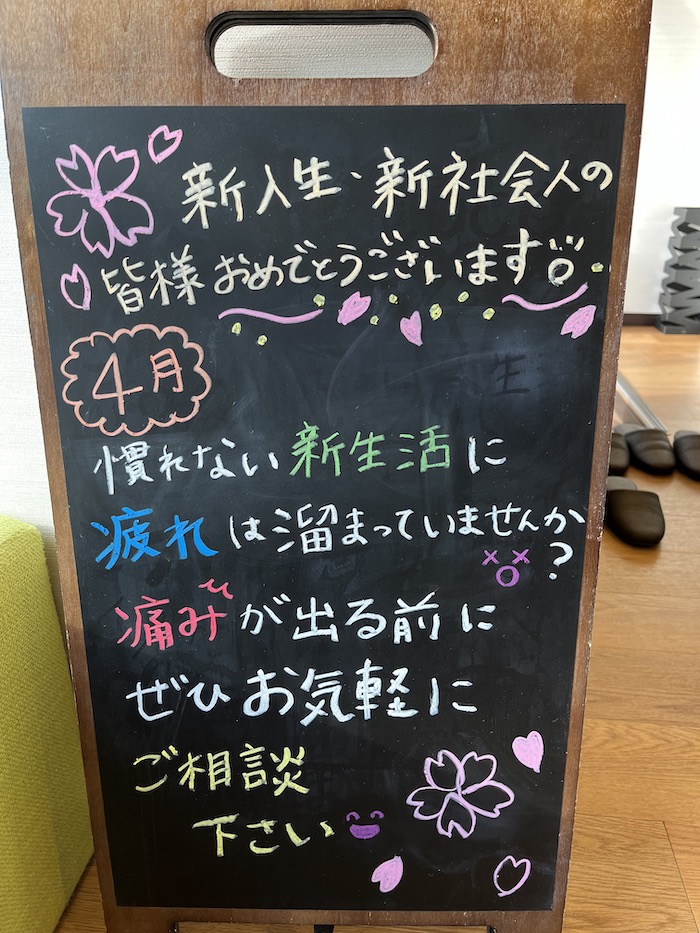 新入生・新社会人の
皆様おめでとうございます。
4月
慣れない新生活に
疲れは溜まっていませんか
?
痛みが出る前に
ぜひお気軽に
ご相談
下さい